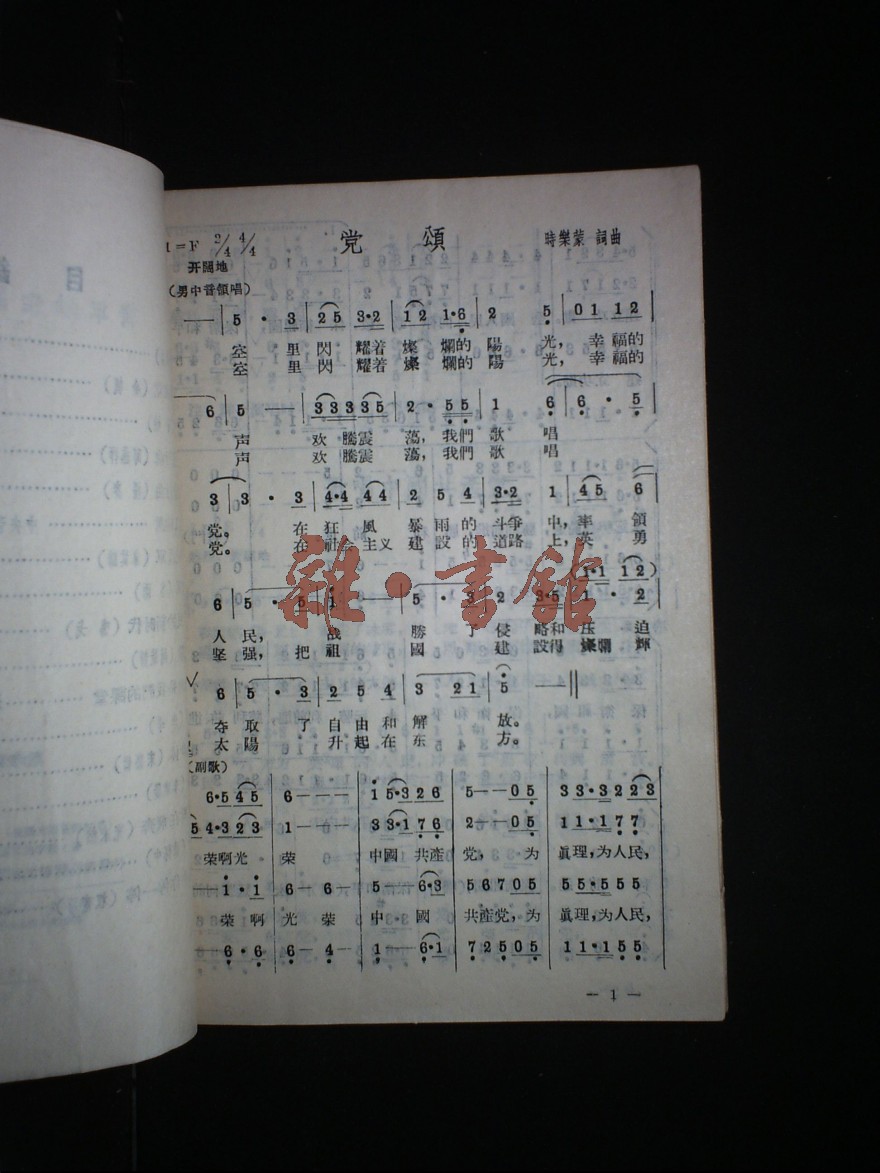 党 頌
1=F 2/4 4/4
時樂蒙 詞曲
开闊地
(男中音領唱)
—— | 5 · 3 | 2 5 3·2 | 1 2 1·6 | 2 5 | 0 1 1 2
空 里 閃 耀着 燦 爛的 陽 光, 幸 福的
空 里 閃 耀着 燦 爛的 陽 光, 幸 福的
6 | 5 —— | 3 3 3 3 5 | 2 · 5 5 | 1 6 | 6 · 5 |
声 欢 騰震 蕩, 我們 歌 唱
声 欢 騰震 蕩, 我們 歌 唱
3 | 3 · 3 | 4·4 4 4 | 2 5 4 | 3·2 1 | 4 5 6
党。 在 狂 風 暴 雨 的 斗爭 中, 率 領
党。 在 社会 主义 建 設 的 道路 上, 英 勇
(1·1 1 2)
6 | 5 · 5 | 1 —— | 5 · 3 | 2 3·5 | 1 · 2
人 民, 战 勝 了 侵 略和 压 迫
坚 强, 把 祖 國 建 設得 燦爛 輝
6 | 5 · 3 | 2 5 4 | 3 2 1 | 5 —— ||
夺 取 了 自 由 和 解 放。
太 陽 升 起 在 东 方。
(副歌)
6·5 4 5 | 6——— | 1 5·3 2 6 | 5——0 5 | 3 3·3 2 2 3
5 4·3 2 3 | 1——— | 3 3·1 7 6 | 2——0 5 | 1 1·1 7 7
荣啊光 荣 中國 共產 党, 为 眞理,为人民,
—1·1 | 6—6— | 5——6·3 | 5 6 7 0 5 | 5 5·5 5 5
荣 啊 光 荣 中 國 共產党,为 眞理,为人民,
—6·6 | 6—4— | 1——6·1 | 7 2 5 0 5 | 1 1·1 5 5
— 1 —
雜·書館